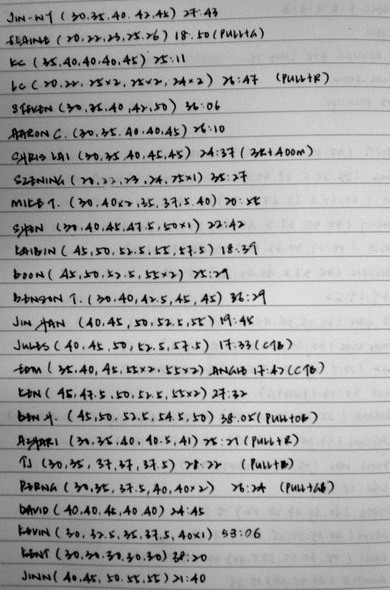 JIN-WY (30.35.40.42.45) 27:43
ELAINE (20.22.23.25.26) 18.50 (PULL+G)
KC (35,40,40.40,45) 25:11
LC (20.22. 25x2, 25x2, 24x2) 26:47 (PULL+R)
STEVEN (30,35.40,42,50) 36:06
AARON C. (30,35.40.40,45) 26:10
CHRIS LAI (30,35,40,45,45) 24:37 (3K+400m)
SZENING (20,22,23,24,25x1) 35:27
MIKE T. (30,40x2,35,37,5.40) 20:25
SHAN (30.40,45,47.5,50x1) 22:42
KAIBIN (45,50,52.5,55,57.5) 18:39
BOON (45,50,52.5,55x2) 25:29
BENSON T. (30.40,42.5,45,45) 36:29
JIN HAN (40.45,50,52.5,55) 19:45
JULES (40.45,50,52.5,57.5) 17:33 (CTB)
(35,40,45,55x2,55x2) ANGIE 17:42 (CTB)
KEN (45,47.5,50,52.5,55x2) 27:32
BEN Y. (45,50,52.5,54.5,50) 38.05 (PULL+OB)
AZHARI (30,35.40,40.5,41) 25:21 (PULL+R)
TJ (30,35,37,37,37.5) 28:22 (PULL+B)
(30,35,37.5,40,40x2) 26:24
DAVID (40,40,45,40,40) 24:45
KEVIN (30,32.5,35,37.5,40x1) 53:06
KENT (30.30.30,30.30) 38:20
JINN (40,45,50.55,55) 21:40